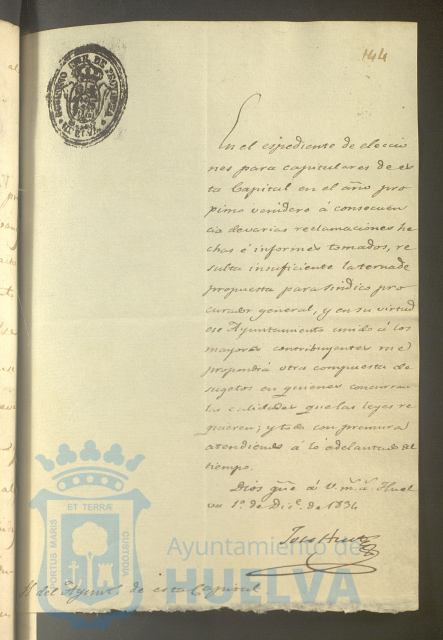 144
GOBIERNO CIVIL DE
HUELVA
En el espediente de eleccio
nes para capitulares de es
ta Capital en el año pro
pimo venidero á consecuen
cia de varias reclamaciones he
chas é informes tomados, re
sulta insuficiente la terna de
propuesta para Sindico pro
curador general, y en su virtud
ese Ayuntamiento unido á los
mayores contribuyentes me
propondrá otra compuesta de
sugetos en quienes concurran
las calidades que las leyes re
quieren; y todo con premura
atendiendo á lo adelantado del
tiempo.
Dios gũe á V. m.s a.s Huel
va 1.º de Dic.e de 1834
del Ayunt.o de esta Capital
PORTUS MARIS ET TERRÆ CUSTODIA
Ayuntamiento de
HUELVA